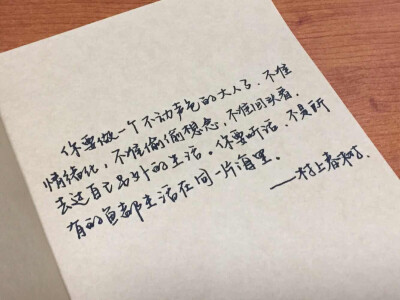 你要做一个不动声色的大人了.不准
情绪化,不准偷偷想念,不准回头看.
去过自己另外的生活。你要听话.不是所
有的鱼都生活在同一片海里。
——村上春树.